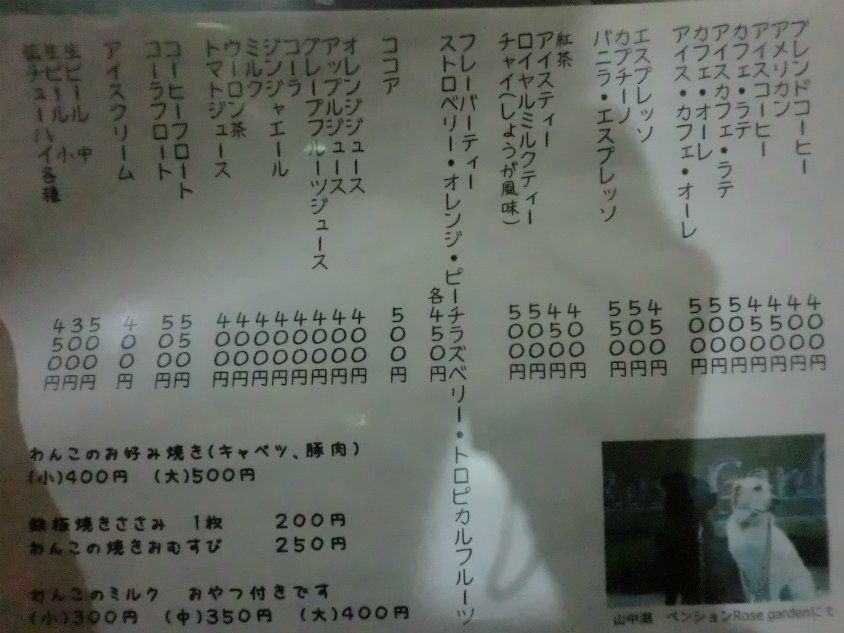 ブレンドコーヒー 400円
アメリカン 400円
アイスコーヒー 450円
カフェ・ラテ 450円
アイスカフェ・ラテ 500円
カフェ・オーレ 500円
アイス・カフェ・オーレ 500円
エスプレッソ 450円
カプチーノ 500円
バニラ・エスプレッソ 550円
紅茶 400円
アイスティー 450円
ロイヤルミルクティー 500円
チャイ(しょうが風味) 500円
フレーバーティー 各450円
ストロベリー・オレンジ・ピーチラズベリー・トロピカルフルーツ
ココア 500円
オレンジジュース 400円
アップルジュース 400円
グレープフルーツジュース 400円
コーラ 400円
ジンジャエール 400円
ミルク 400円
ウーロン茶 400円
トマトジュース 400円
コーヒーフロート 550円
コーラフロート 500円
アイスクリーム 400円
生ビール 中 500円
生ビール 小 300円
缶チューハイ各種 450円
わんこのお好み焼き(キャベツ、豚肉)
(小)400円 (大)500円
鉄板焼きささみ 1枚 200円
わんこの焼きおむすび 250円
わんこのミルク おやつ付きです
(小)300円 (中)350円 (大)400円
山中湖 ペンションRose gardenにて